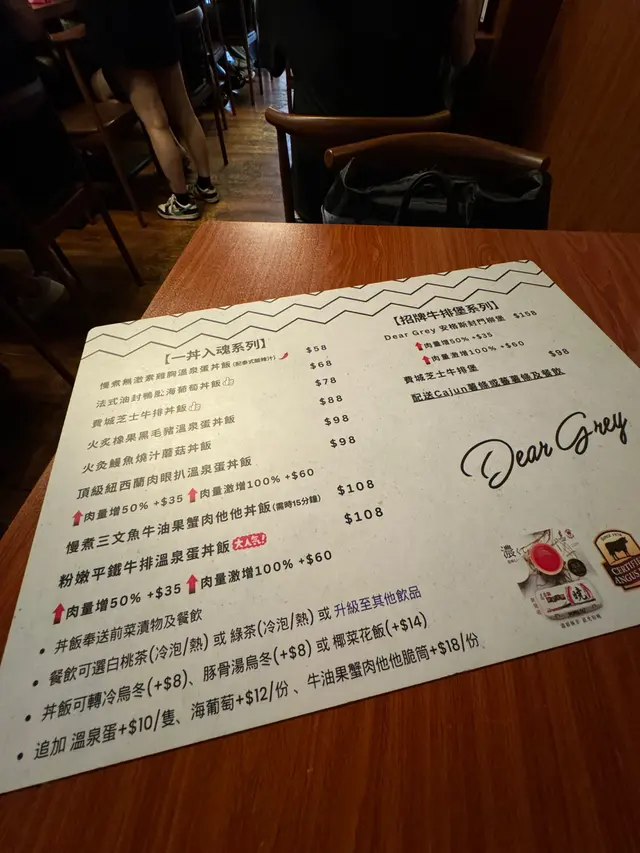 【一丼入魂系列】
慢煮無激素雞胸溫泉蛋丼飯(配泰式酸辣汁) $58
法式油封鴨髀海葡萄丼飯 $68
費城芝士牛排丼飯 $78
火炙橡果黑毛豬溫泉蛋丼飯 $88
火灸鰻魚燒汁蘑菇丼飯 $98
頂級紐西蘭肉眼扒溫泉蛋丼飯 $98
肉量增50% +$35 肉量激增100% +$60
慢煮三文魚牛油果蟹肉他他丼飯(需時15分鐘) $108
粉嫩平鐵牛排溫泉蛋丼飯 大人氣! $108
肉量增50% +$35 肉量激增100% +$60
• 丼飯奉送前菜漬物及餐飲
• 餐飲可選白桃茶(冷泡/熱) 或 綠茶(冷泡/熱) 或 升級至其他飲品
• 丼飯可轉冷烏冬(+$8)、豚骨湯烏冬(+$8) 或 椰菜花飯(+$14)
• 追加 溫泉蛋+$10/隻、海葡萄+$12/份、牛油果蟹肉他他脆筒+$18/份
【招牌牛排堡系列】
Dear Grey 安格斯封門柳堡 $158
肉量增50% +$35
肉量激增100% +$60
費城芝士牛排堡 $98
配送Cajun薯條或番薯條及餐飲
Dear Grey
濃
CERTIFIED
ANGUS